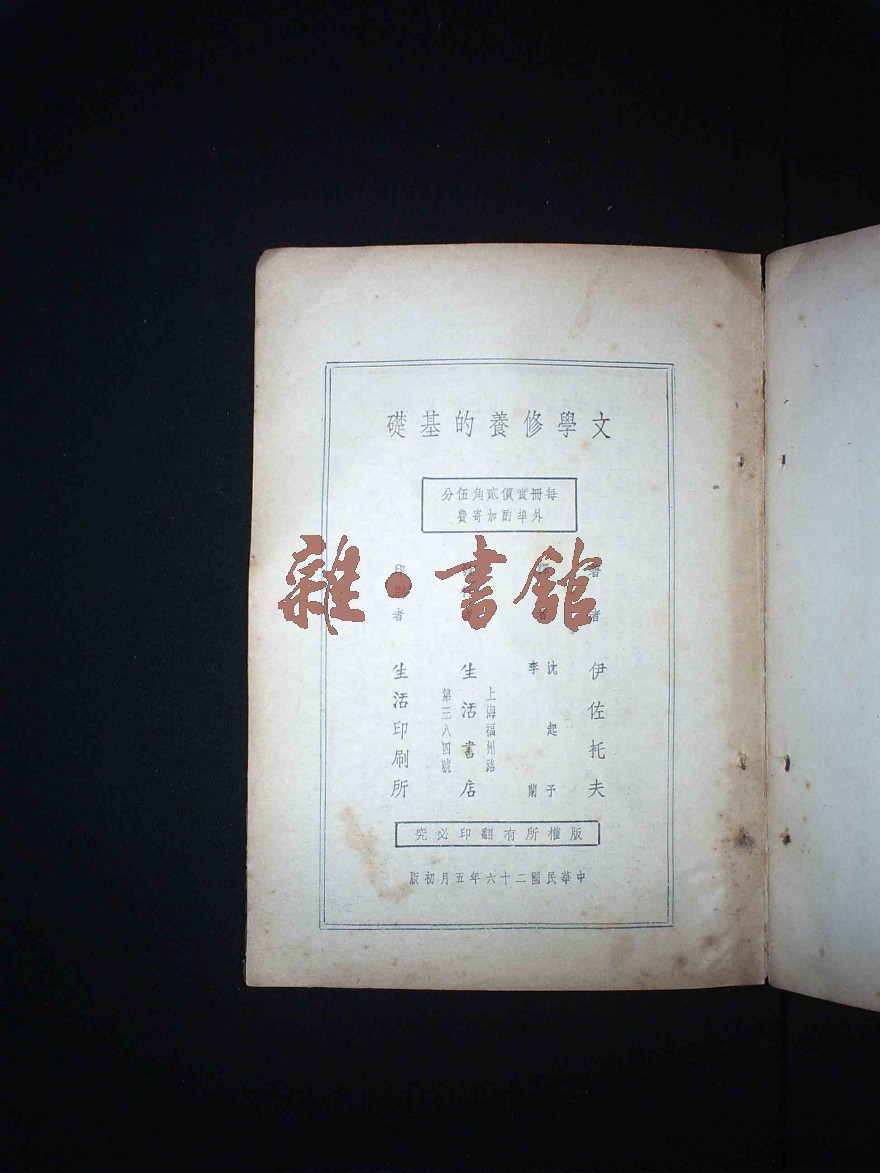 文學修養的基礎
每冊實價貳角伍分
外埠酌加寄費
著者
伊佐托夫
者
沈起予
李蘭
者
生活書店
上海福州路
第三八四號
印刷者
生活印刷所
版權所有翻印必究
中華民國二十六年五月初版
雜·書館